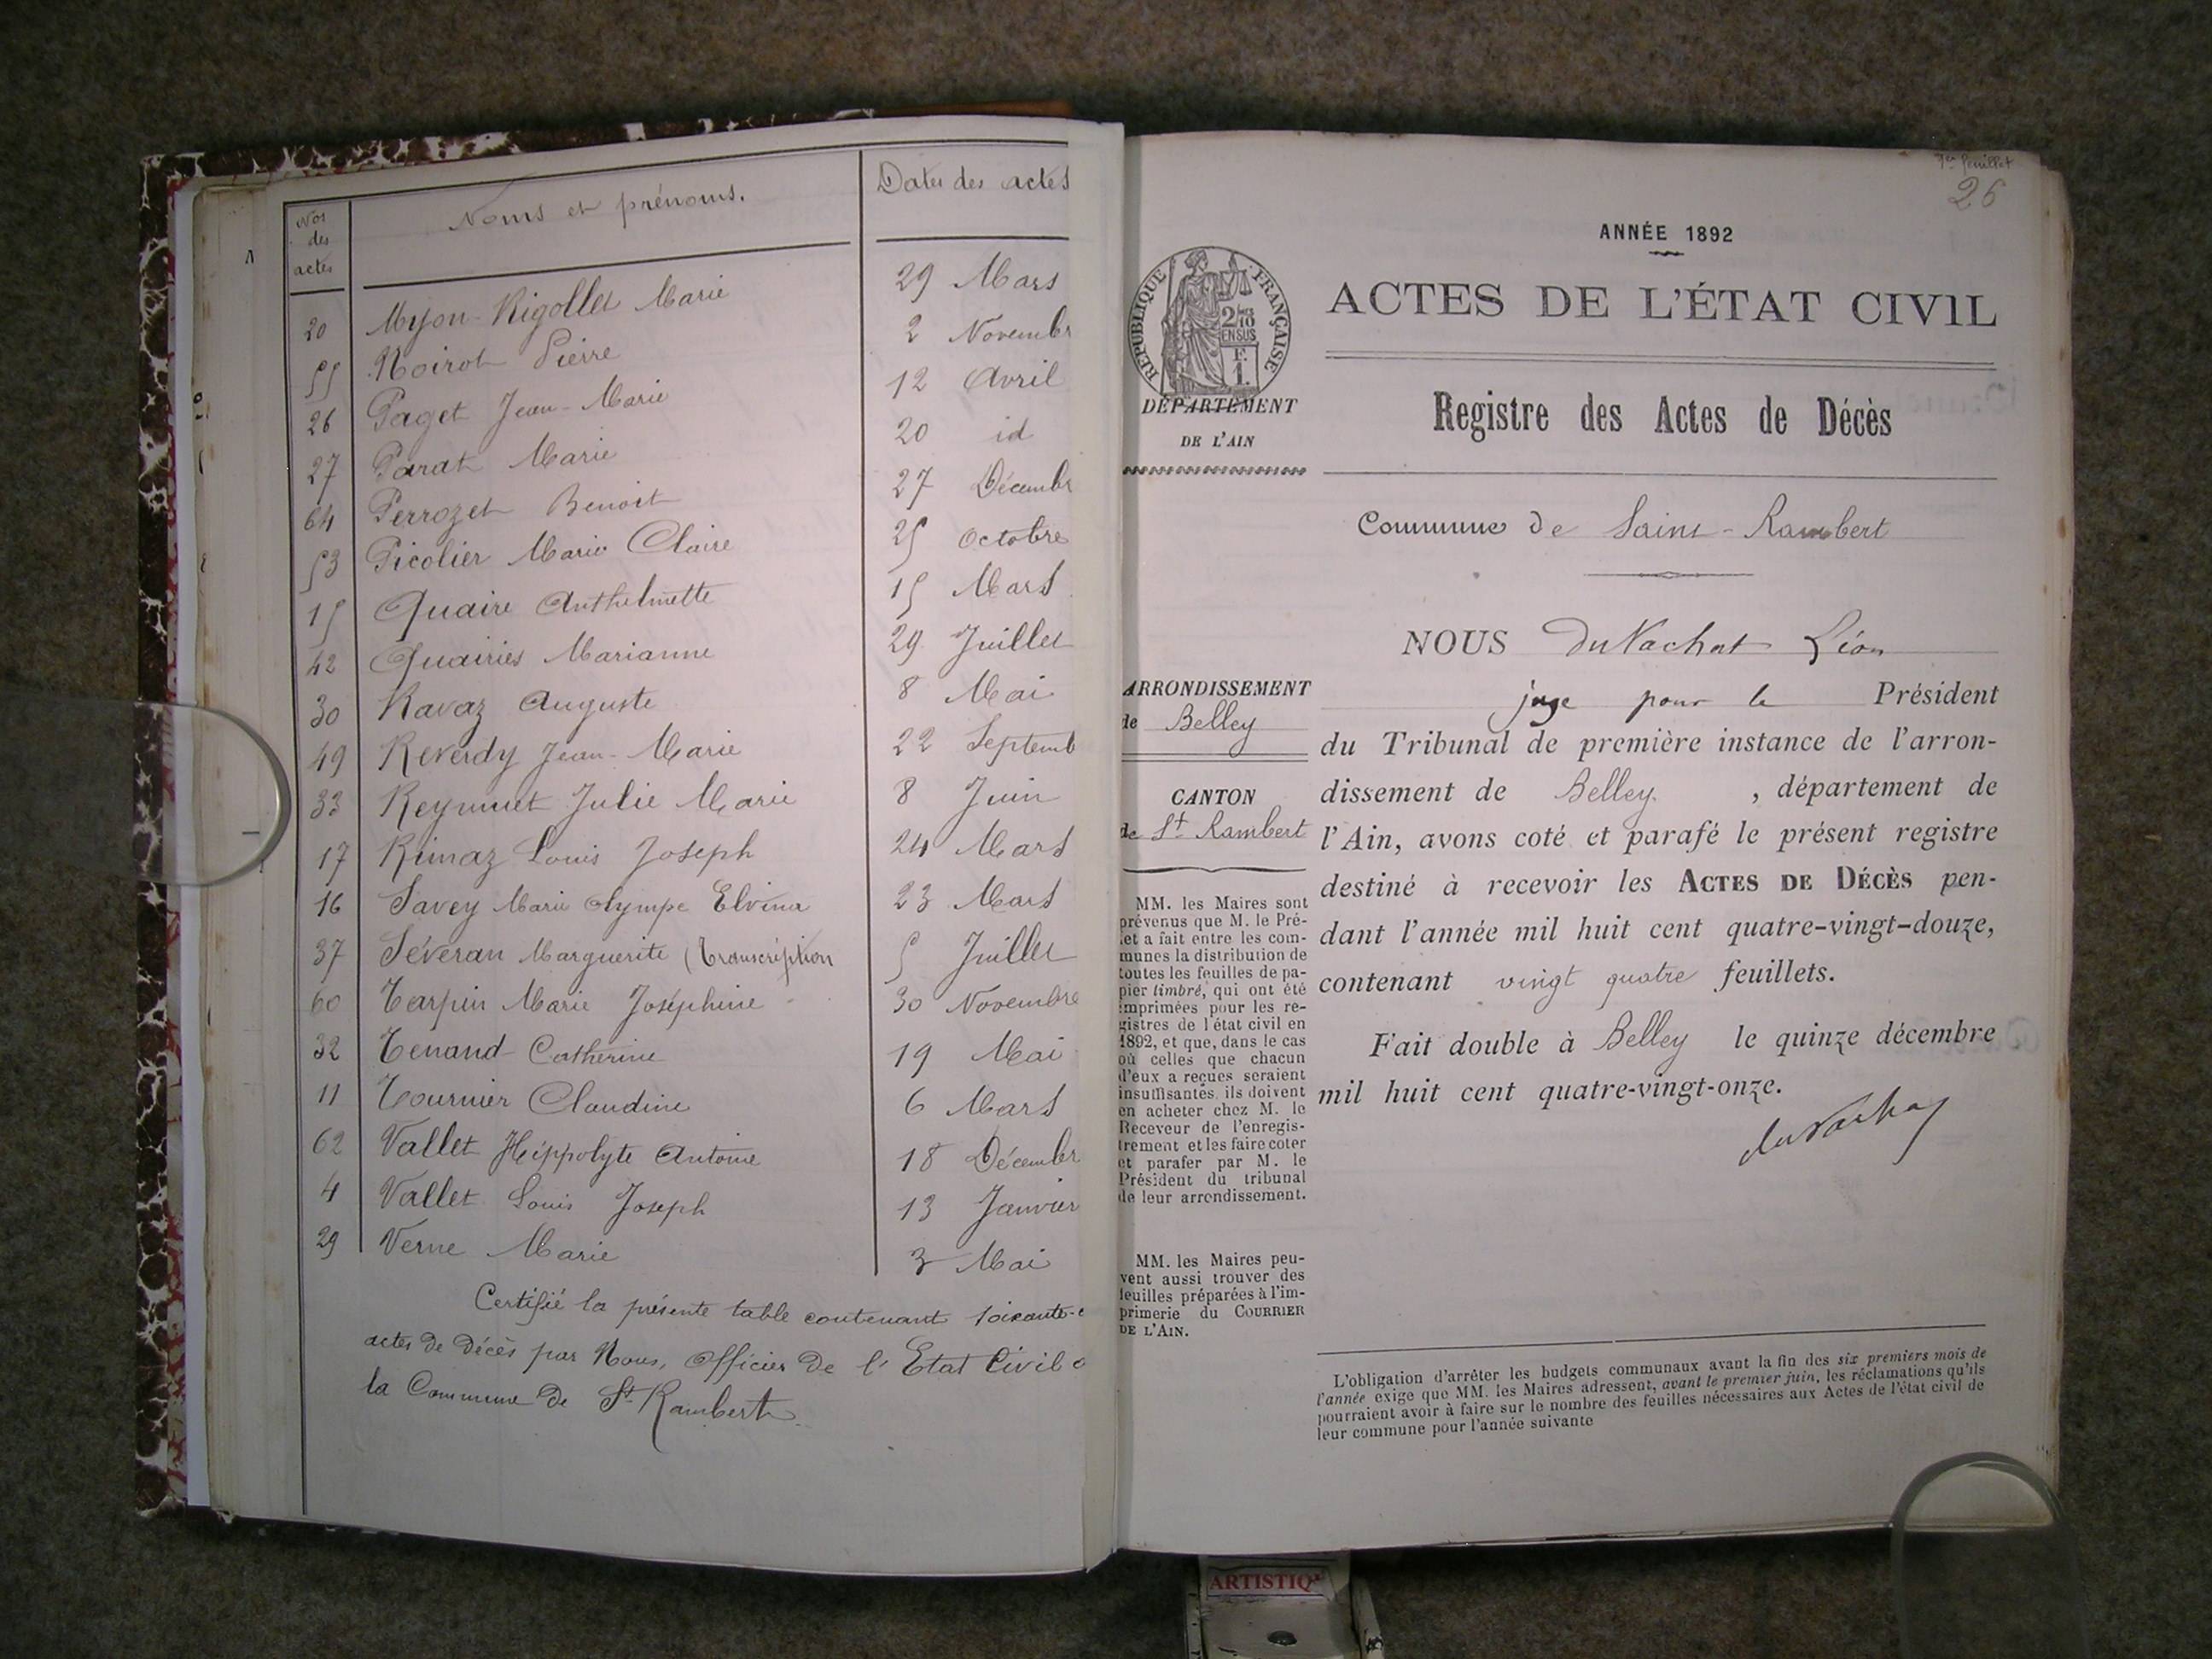 Nos des actes Noms et prénoms. Dates des actes
20 Myon-Rigollet Marie 29 Mars
55 Noirot Pierre 2 Novembr
26 Paget Jean-Marie 12 Avril
27 Parat Marie 20 id
64 Perrozet Benoit 27 Décembr
53 Picolier Marie Claire 25 Octobre
15 Quaire Anthelmette 15 Mars
42 Quairies Marianne 29 Juillet
30 Ravaz Auguste 8 Mai
49 Reverdy Jean-Marie 22 Septemb
33 Reymmet Julie Marie 8 Juin
17 Rimaz Louis Joseph 24 Mars
16 Savey Marie Olympe Elvina 23 Mars
37 Séveran Marguerite (Transcription 5 Juillet
60 Tarpin Marie Joséphine 30 Novembre
32 Tenand Catherine 19 Mai
11 Tournier Claudine 6 Mars
62 Vallet Hippolyte Antoine 18 Décembr
4 Vallet Louis Joseph 13 Janvier
29 Verne Marie 3 Mai
Certifié la présente table contenant soixante-
actes de décès par Nous, Officier de l'Etat Civil
la Commune de St Rambert.
1er feuillet
26
ANNÉE 1892
ACTES DE L'ÉTAT CIVIL
RÉPUBLIQUE FRANÇAISE
2/10 EN SUS
F.
1.
DÉPARTEMENT
DE L'AIN
Registre des Actes de Décès
Commune de Saint-Rambert
NOUS Du Vachat Léon
juge pour le Président
du Tribunal de première instance de l'arron-
dissement de Belley, département de
l'Ain, avons coté et parafé le présent registre
destiné à recevoir les ACTES DE DÉCÈS pen-
dant l'année mil huit cent quatre-vingt-douze,
contenant vingt quatre feuillets.
Fait double à Belley le quinze décembre
mil huit cent quatre-vingt-onze.
du Vachat
ARRONDISSEMENT
de Belley
CANTON
de St Rambert
MM. les Maires sont
prévenus que M. le Pré-
et a fait entre les com-
munes la distribution de
toutes les feuilles de pa-
pier timbré, qui ont été
imprimées pour les re-
gistres de l'état civil en
1892, et que, dans le cas
où celles que chacun
d'eux a reçues seraient
insuffisantes, ils doivent
en acheter chez M. le
Receveur de l'enregis-
trement et les faire coter
et parafer par M. le
Président du tribunal
de leur arrondissement.
MM. les Maires peu-
vent aussi trouver des
feuilles préparées à l'im-
primerie du COURRIER
DE L'AIN.
L'obligation d'arrêter les budgets communaux avant la fin des six premiers mois de
l'année exige que MM. les Maires adressent, avant le premier juin, les réclamations qu'ils
pourraient avoir à faire sur le nombre des feuilles nécessaires aux Actes de l'état civil de
leur commune pour l'année suivante
ARTISTIQ